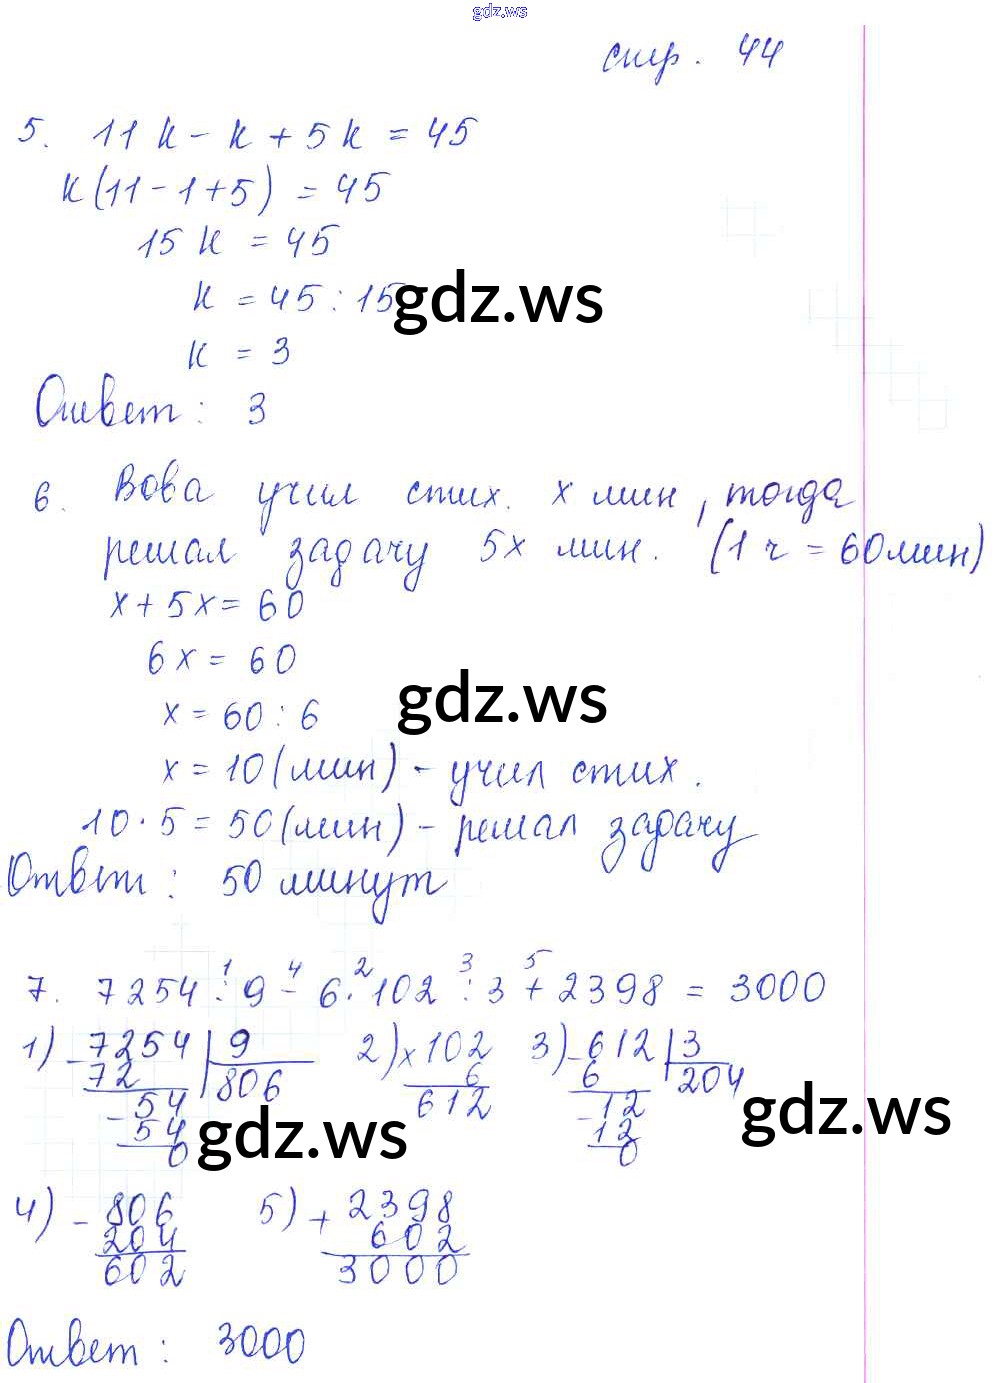 gdz.ws
стр. 44
5. 11к - к + 5к = 45
к(11 - 1 + 5) = 45
15 к = 45
к = 45 : 15
gdz.ws
к = 3
Ответ: 3
6. Вова учил стих. х мин, тогда
решал задачу 5х мин. (1 ч = 60мин)
х + 5х = 60
6х = 60
gdz.ws
х = 60 : 6
х = 10 (мин) - учил стих.
10 · 5 = 50 (мин) - решал задачу
Ответ: 50 минут
1 4 2 3 5
7. 7254 : 9 - 6 · 102 : 3 + 2398 = 3000
1) - 7254 | 9 2) х 102 3) - 612 | 3
72 806 6 6 204
- 54 612 - 12
54 12
0 0
gdz.ws gdz.ws
4) - 806 5) + 2398
204 602
602 3000
Ответ: 3000